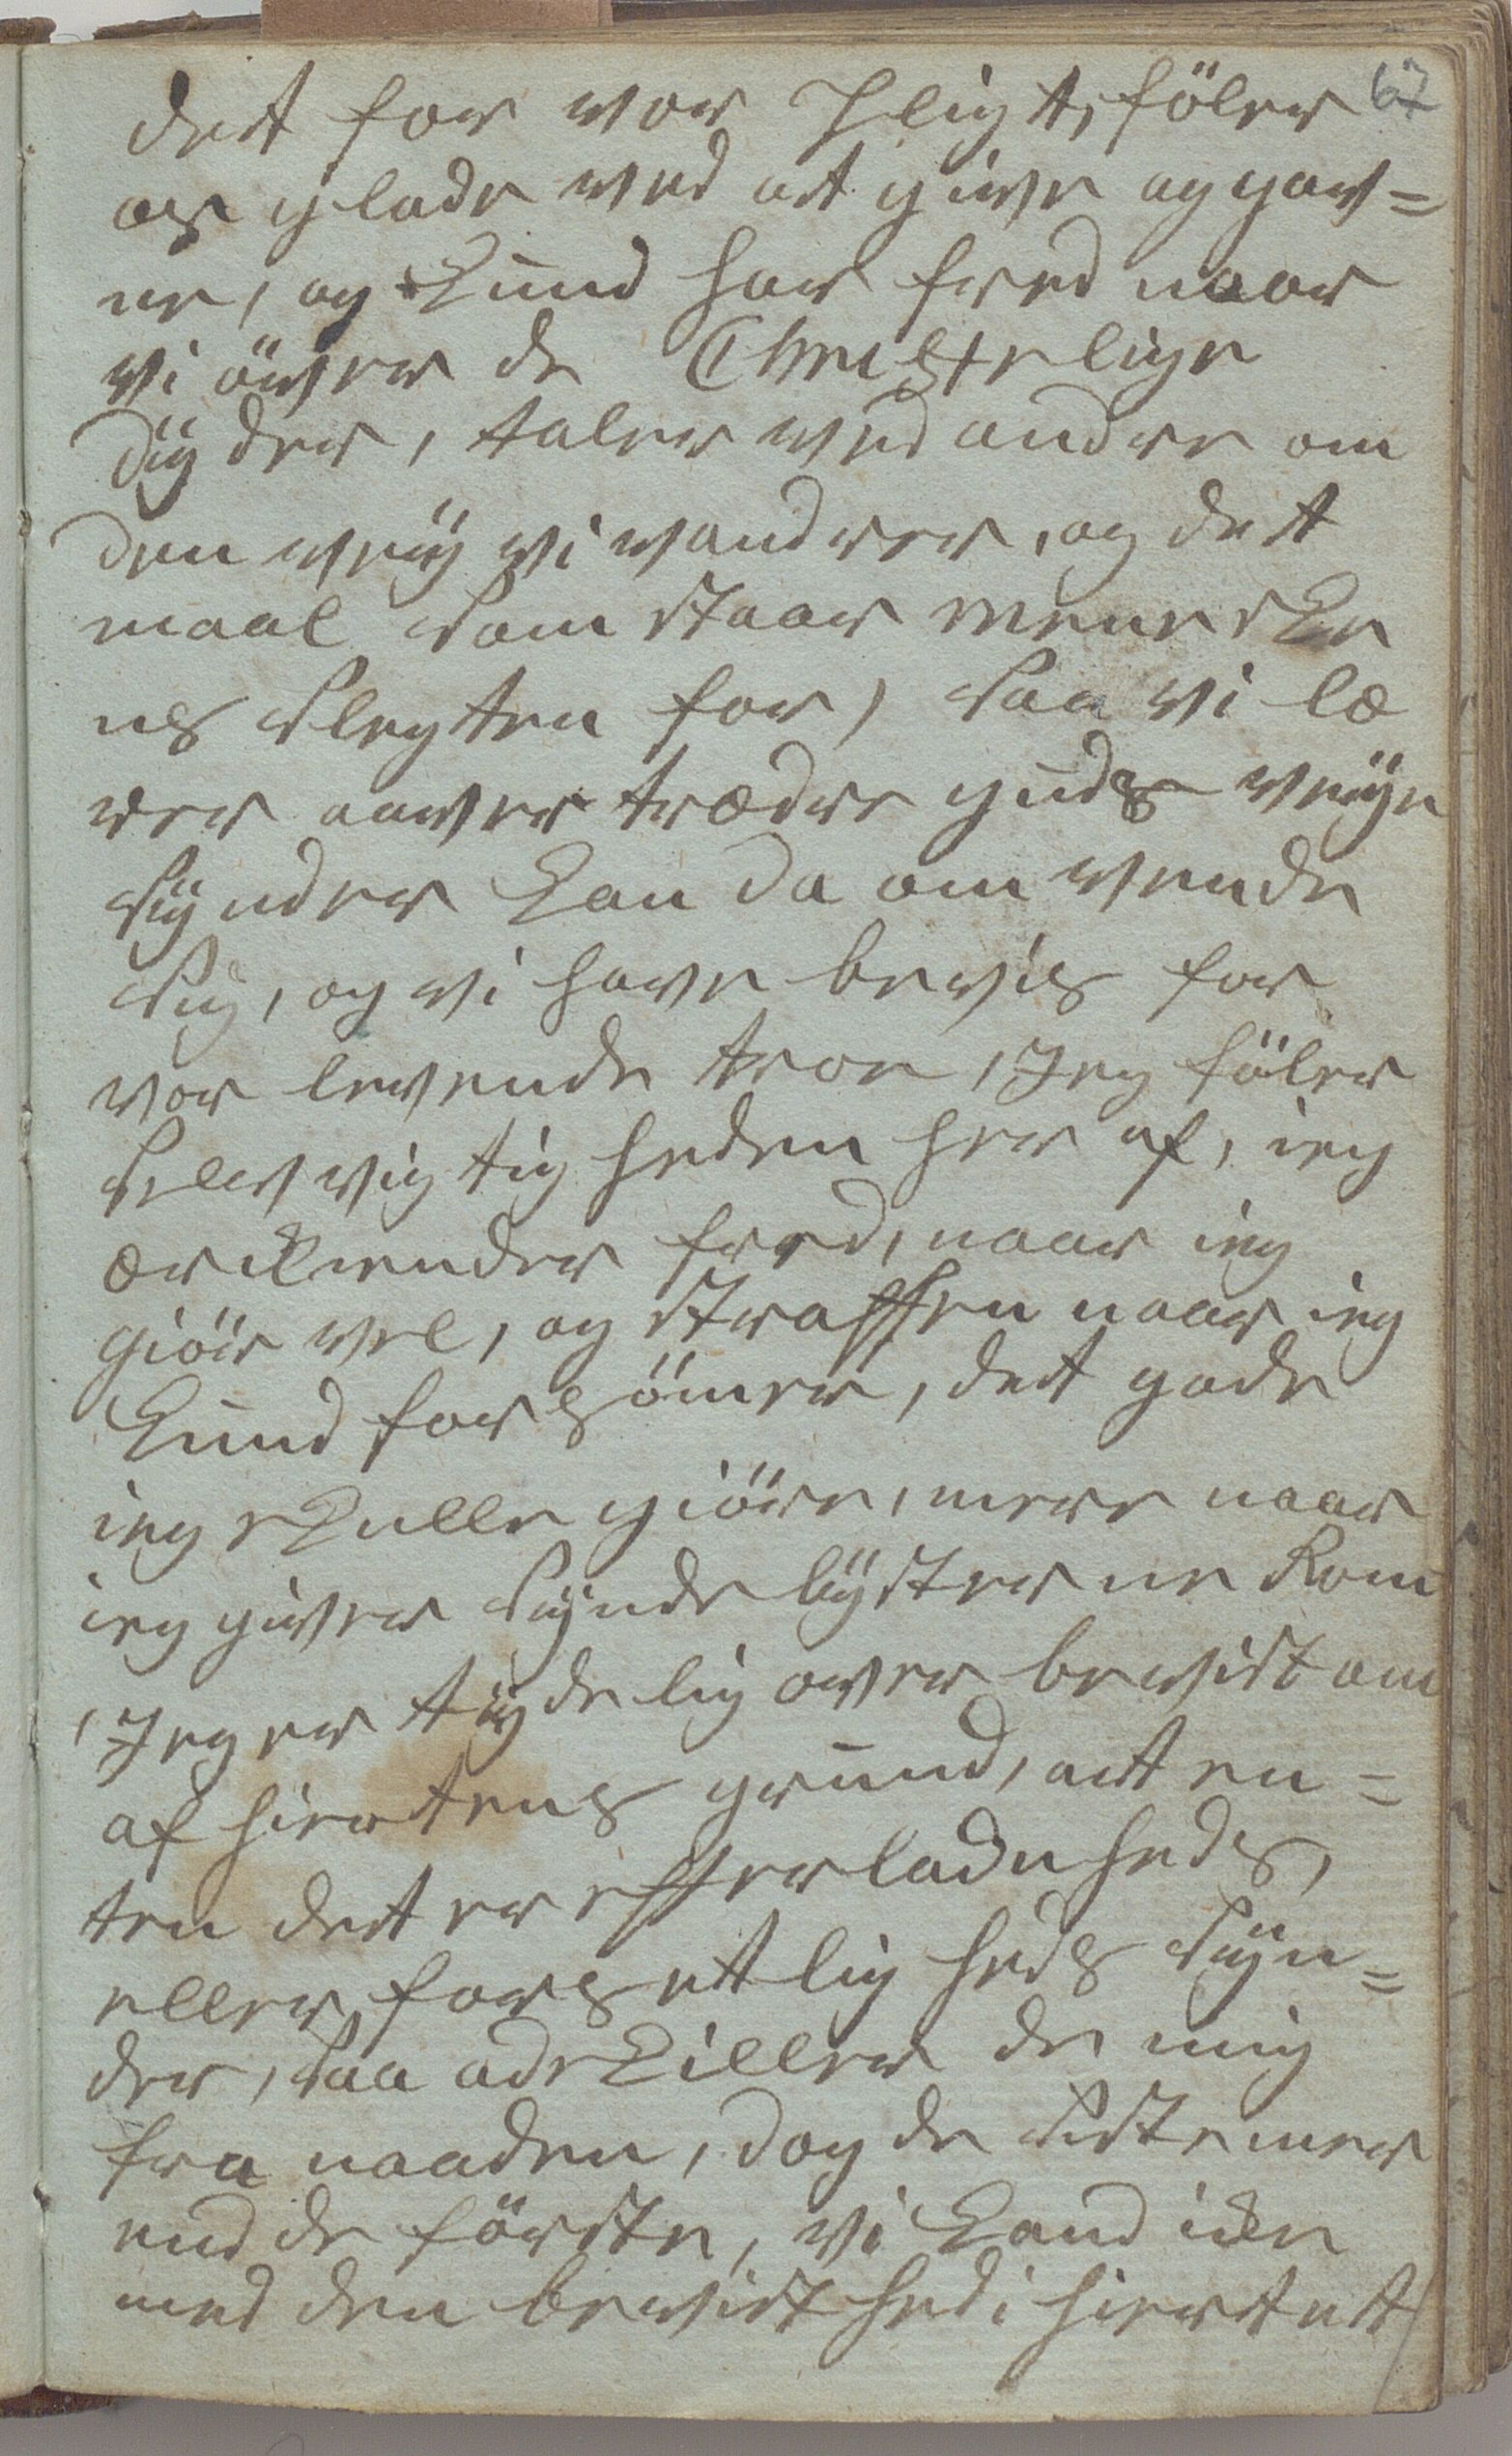 67
dett for vor Pligt, föler
os glade ved att give og gav=
ne, og kund har fred naar
vi över de Christelige
dÿder, taler ved andre om
den veÿ vi vandrer, og dett
maal som staar menneske
ns slegten for, saa vi læ
rer aavertrædre guds veÿe
sÿnder kan da om vende
sig, og vi have bevis for
vor levende troe, Jeg föler
selv vigtig heden her af, ieg
ærkiender fred, naar ieg
giör vel, og straffen naar ieg
kund forsömer, dett gode
ieg skulle giöre, mere naar
ieg giver sÿnde lÿsterne Rom
, Jeg er tÿdelig over bevist om
af hiertens grund, att en=
ten dett er efferladn heds,
eller forsettlig heds sÿn=
der, saa adskiller de mig
fra naaden, dog de siste mer
end de förste, vi kand icke
med den bevist hed i hiertett